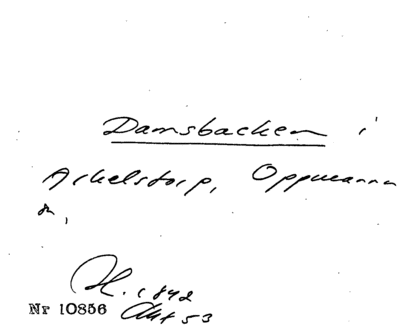 Damsbacken i
Arkelstorp, Oppmanna
sn,
H. 1842
Akt 53
Nr 10856